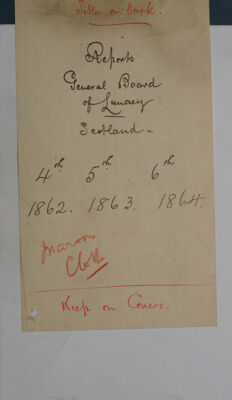 Title on back.
Reports
General Board
of Lunacy
Scotland.
4th 5th 6th
1862. 1863. 1864.
maroon
Cloth
Keep on Covers.